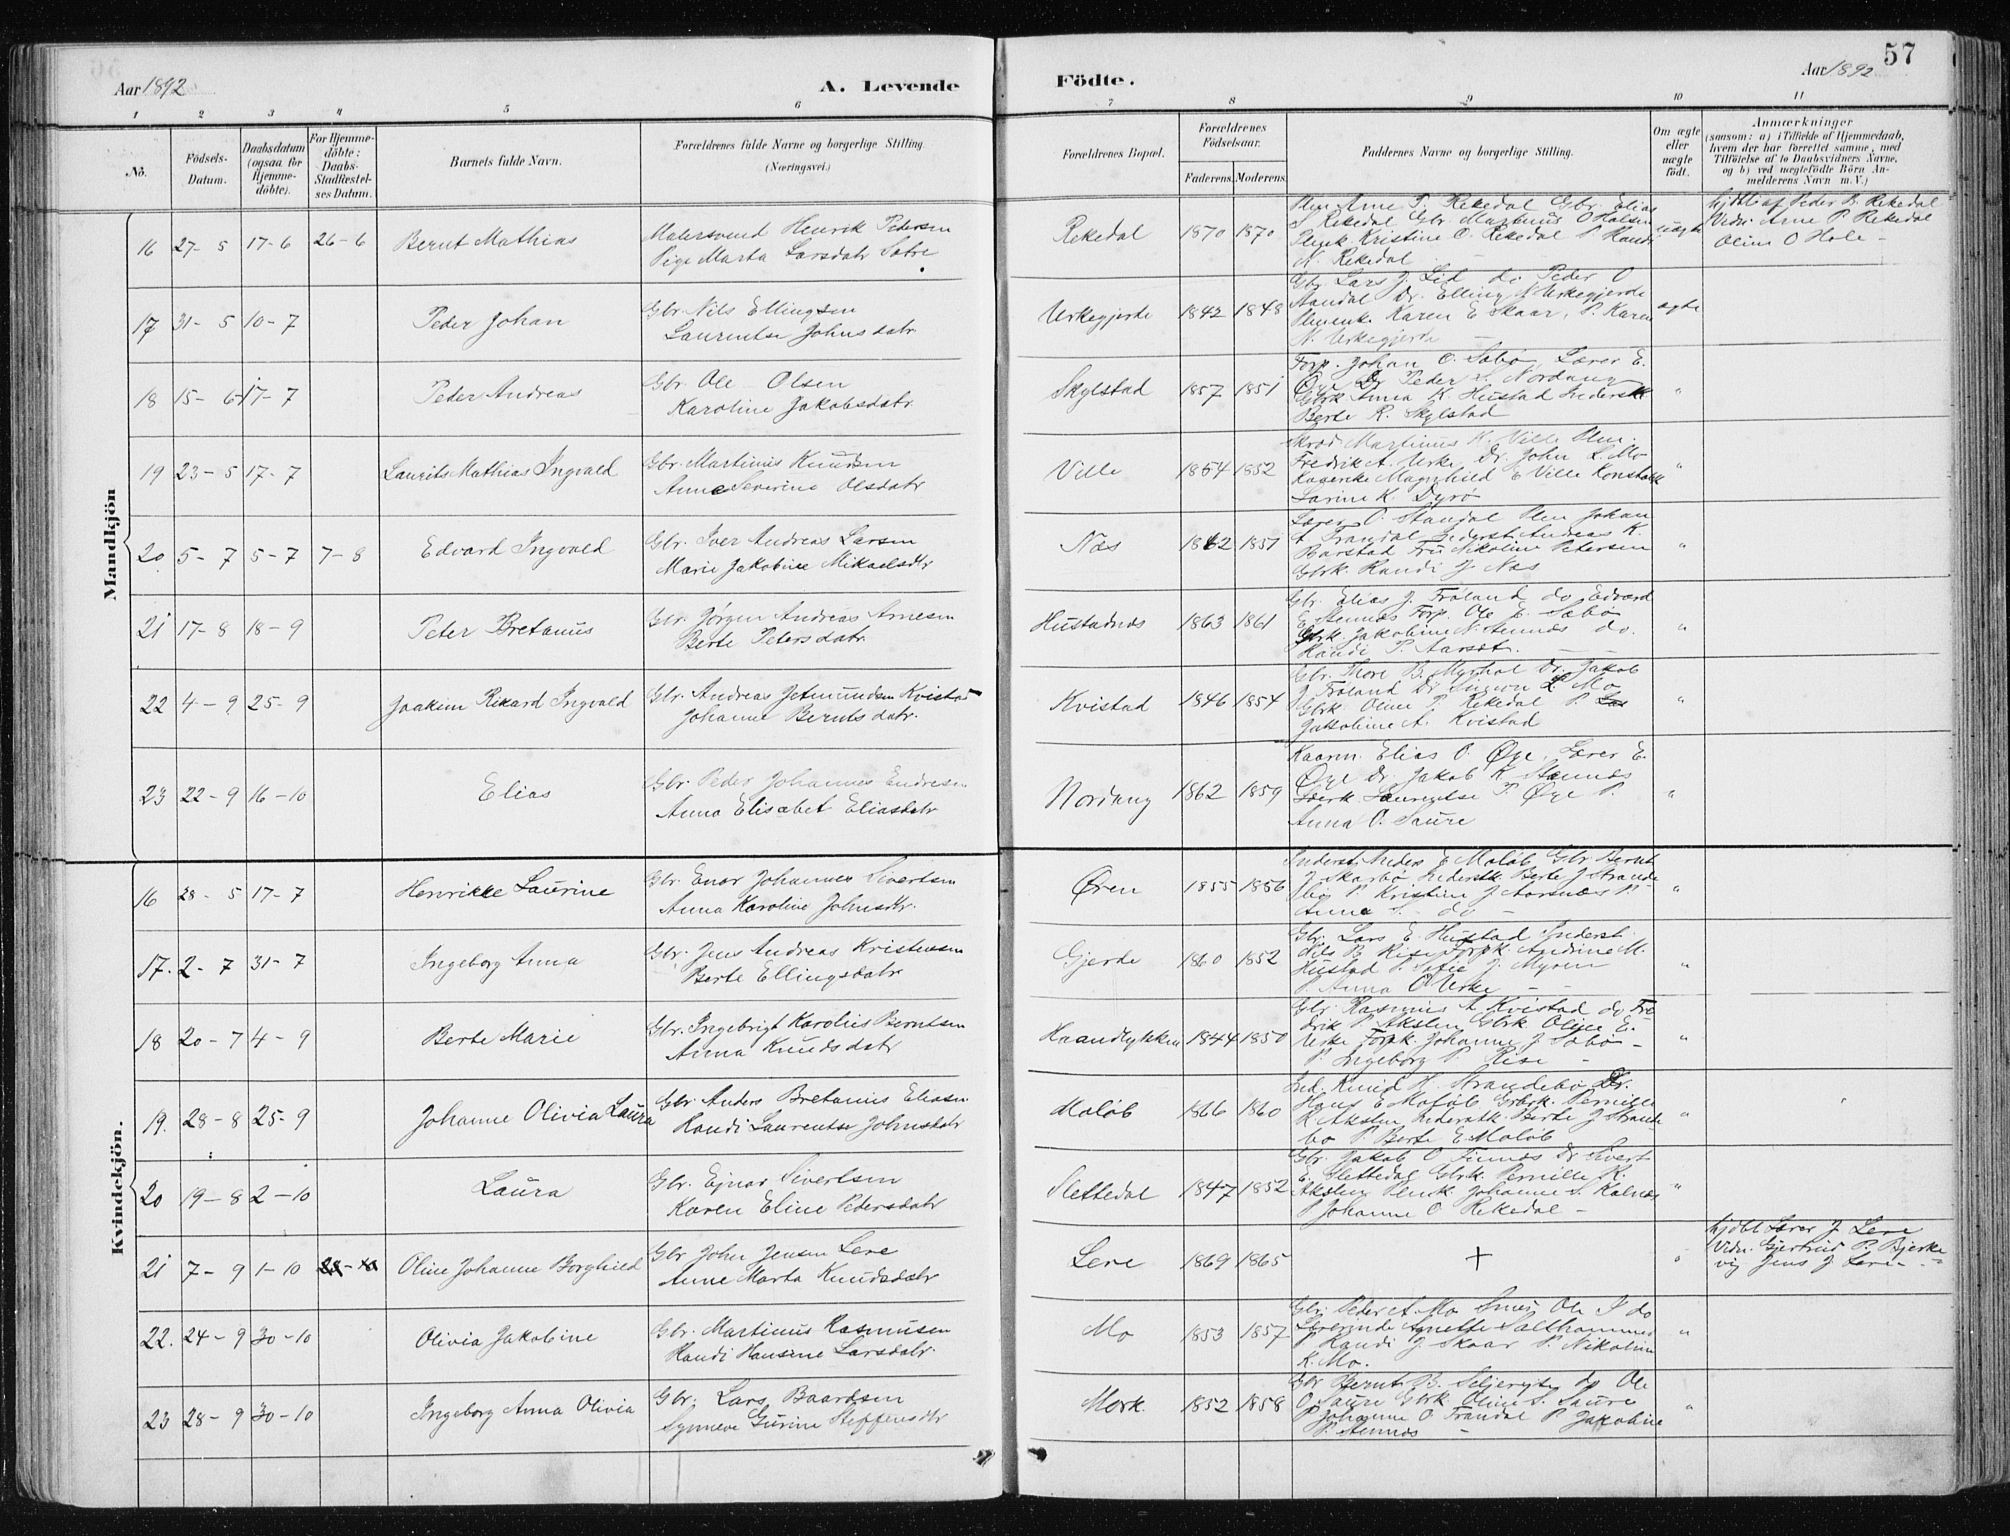 57
Aar 1892
A. Levende
Födte.
Aar 1892
1 2 3 4 5 6 7 8 9 10 11
No.
Födsels-Datum.
Daabsdatum (ogsaa for Hjemmedöbte).
For Hjemmedöbte: Daabs-Stadfestelses Datum.
Barnets fulde Navn.
Forældrenes fulde Navne og borgerlige Stilling. (Næringsvei.)
Forældrenes Bopæl.
Forældrenes Födselsaar.
Faderens. Moderens.
Faddernes Navne og borgerlige Stilling.
Om ægte eller uægte födt.
Anmærkninger
(saasom: a) i Tilfælde af Hjemmedaab, hvem der har forrettet samme, med Tilföielse af to Daabsvidners Navne, og b) ved uægtefödte Börn Anmelderens Navn m. V.)
Mandkjön
16 27-5 17-6 26-6 Bernt Mathias
Malersvend Henrik Petersen
Pige Marta Larsdatr Sætre
Rekedal 1870 1870
Ulm Arne P. Rekedal Gbr. Elias
S Rekedal Gbr. Martinus O Holsen
Kristine O. Rekedal P. Randi
N. Rekedal
uægte
hjdbt af Peder B Rekedal
Vidn. Arne P. Rekedal
Oline O Hole -
17 31-5 10-7 Peder Johan
Gbr. Nils Ellingsen
Laurentse Johnsdatr
Urkegjerde 1842 1848
Gbr Lars J. Lid do Peder O
Aandal Dr. Elling N Urkegjerde
Karen E Skaar, P. Karen
N. Urkegjerde
ægte
18 15-6 17-7 Peter Andreas
Gbr. Ole Olsen
Karoline Jakobsdatr
Skylstad 1857 1851
Forp. Johan O. Sæbø, Lærer E.
Øye Dr Peder S. Nordang
Gbrk Anna K. Hustad Inderstk
Berte R. Skylstad
"
19 23-5 17-7 Laurits Mathias Ingvald
Gbr. Martinus Knudsen
Anne Severine Olsdatr
Ville 1854 1852
Martinus K. Ville
Fredrik A. Urke, Dr. John L. Mo
Magnhild E Ville
Larine K. Dyrø
"
20 5-7 5-7 7-8 Edvard Ingvald
Gbr. Iver Andreas Larsen
Marie Jakobine Mikaelsdtr
Næs 1862 1851
Lærer O. Standal Johan
A Frandal Inderst Andreas K.
Barstad Fru Nikoline Petersen
Gbrk. Randi J. Næs
"
21 17-8 18-9 Peter Bretanus
Gbr. Jørgen Andreas Arnesen
Berte Petersdatr.
Hustadnes 1863 1861
Gbr. Elias J. Frøland do Edvard
E Stennæs Forp. Ole E. Sæbø
Gbrk. Jakobine N. Stennæs do.
Randi P. Aarset. - -
"
22 4-9 25-9 Joakim Rikard Ingvald
Gbr. Andreas Jetmundsen Kvistad
Johanne Berntsdatr.
Kvistad 1846 1854
Gbr. Thore B. Myrhol Dr. Jakob
J Frøland Dr L. Mo
Gbrk Oline P. Rekedal P.
Jakobine A. Kvistad
"
23 22-9 16-10 Elias
Gbr. Peder Johannes Endresen
Anna Elisabet Eliasdatr
Nordang 1862 1859
Kaarm. Elias O. Øye, Lærer E.
Øye Dr. Jakob K Stennæs
Laurentse P. Øye P.
Anna O. Saure
"
Kvindekjön.
16 28-5 17-7 Henrikke Laurine
Gbr. Enor Johannes Sivertsen
Anna Karoline Johnsdtr.
Øren 1855 1856
Inderst. Anders E. Maløb Gbr. Bernt
J Skarbø Inderstk Berte J Strande
bø P. Kristine J Aarsnæs P.
Anna S. do -
"
17. 2-7 31-7 Ingeborg Anna
Gbr. Jens Andreas Kristensen
Berte Ellingsdatr
Gjerde 1860 1852
Gbr. Lars E. Hustad Inderst.
Nils B Rise Forpk. Andrine M.
Hustad P. Sofie J. Myren
P. Anna O Urke - -
"
18 20-7 4-9 Berte Marie
Gbr. Ingebrigt Karolius Berntsen
Anna Knudsdatr
Haandlykken 1844 1850
Gbr. Rasmus A Kvistad do Fre
drik P. Akslen Gbrk Oline E.
Urke Forpk. Johanne J Sæbø -
P. Ingeborg P. Rise -
"
19. 28-8 25-9 Johanne Olivia Laura
Gbr. Anders Bretanus Eliasen
Randi Laurentse Johnsdatr
Maløb 1866 1860
Ind. Knud H. Strandebø Dr.
Hans E Maløb Gbrk. Pernille
R Akslen Inderstk. Berte J Strande
bø P. Berte E. Maløb
"
20 19-8 2-10 Laura
Gbr. Ejnar Sivertsen
Karen Eline Pedersdatr
Slettedal 1847 1852
Gbr. Jakob O Finnes Dr Sivert
E. Slettedal Gbrk. Pernille R.
Akslen Johanne S. Kalnæs
P Johanne O Rekedal -
"
21 7-9 1-10 Oline Johanne Borghild
Gbr John Jensen Leve
Anne Marta Knudsdatr
Leve 1869 1865
+
"
hjdbt Lærer J Leve
Vidn. Gjertrud P. Bjerke
vig Jens J Leve - -
22. 24-9 30-10 Olivia Jakobine
Gbr. Martinus Rasmusen
Randi Hansine Larsdatr.
Mo 1853 1857
Gbr. Peder A. Mo Smed Ole I do
Lærerinde Agnette Salthammer
P Randi J. Skaar P. Nikoline
K. Mo.
"
23 28-9 30-10 Ingeborg Anna Olivia
Gbr. Lars Baardsen
Synneve Gurine Steffensdtr
Mork. 1852 1858
Gbr Bernt B. Seljeseyte do Ole
O. Saure Gbrk Oline S. Saure
P. Johanne O Frandal P. Jakobine
P. Stennæs -
"